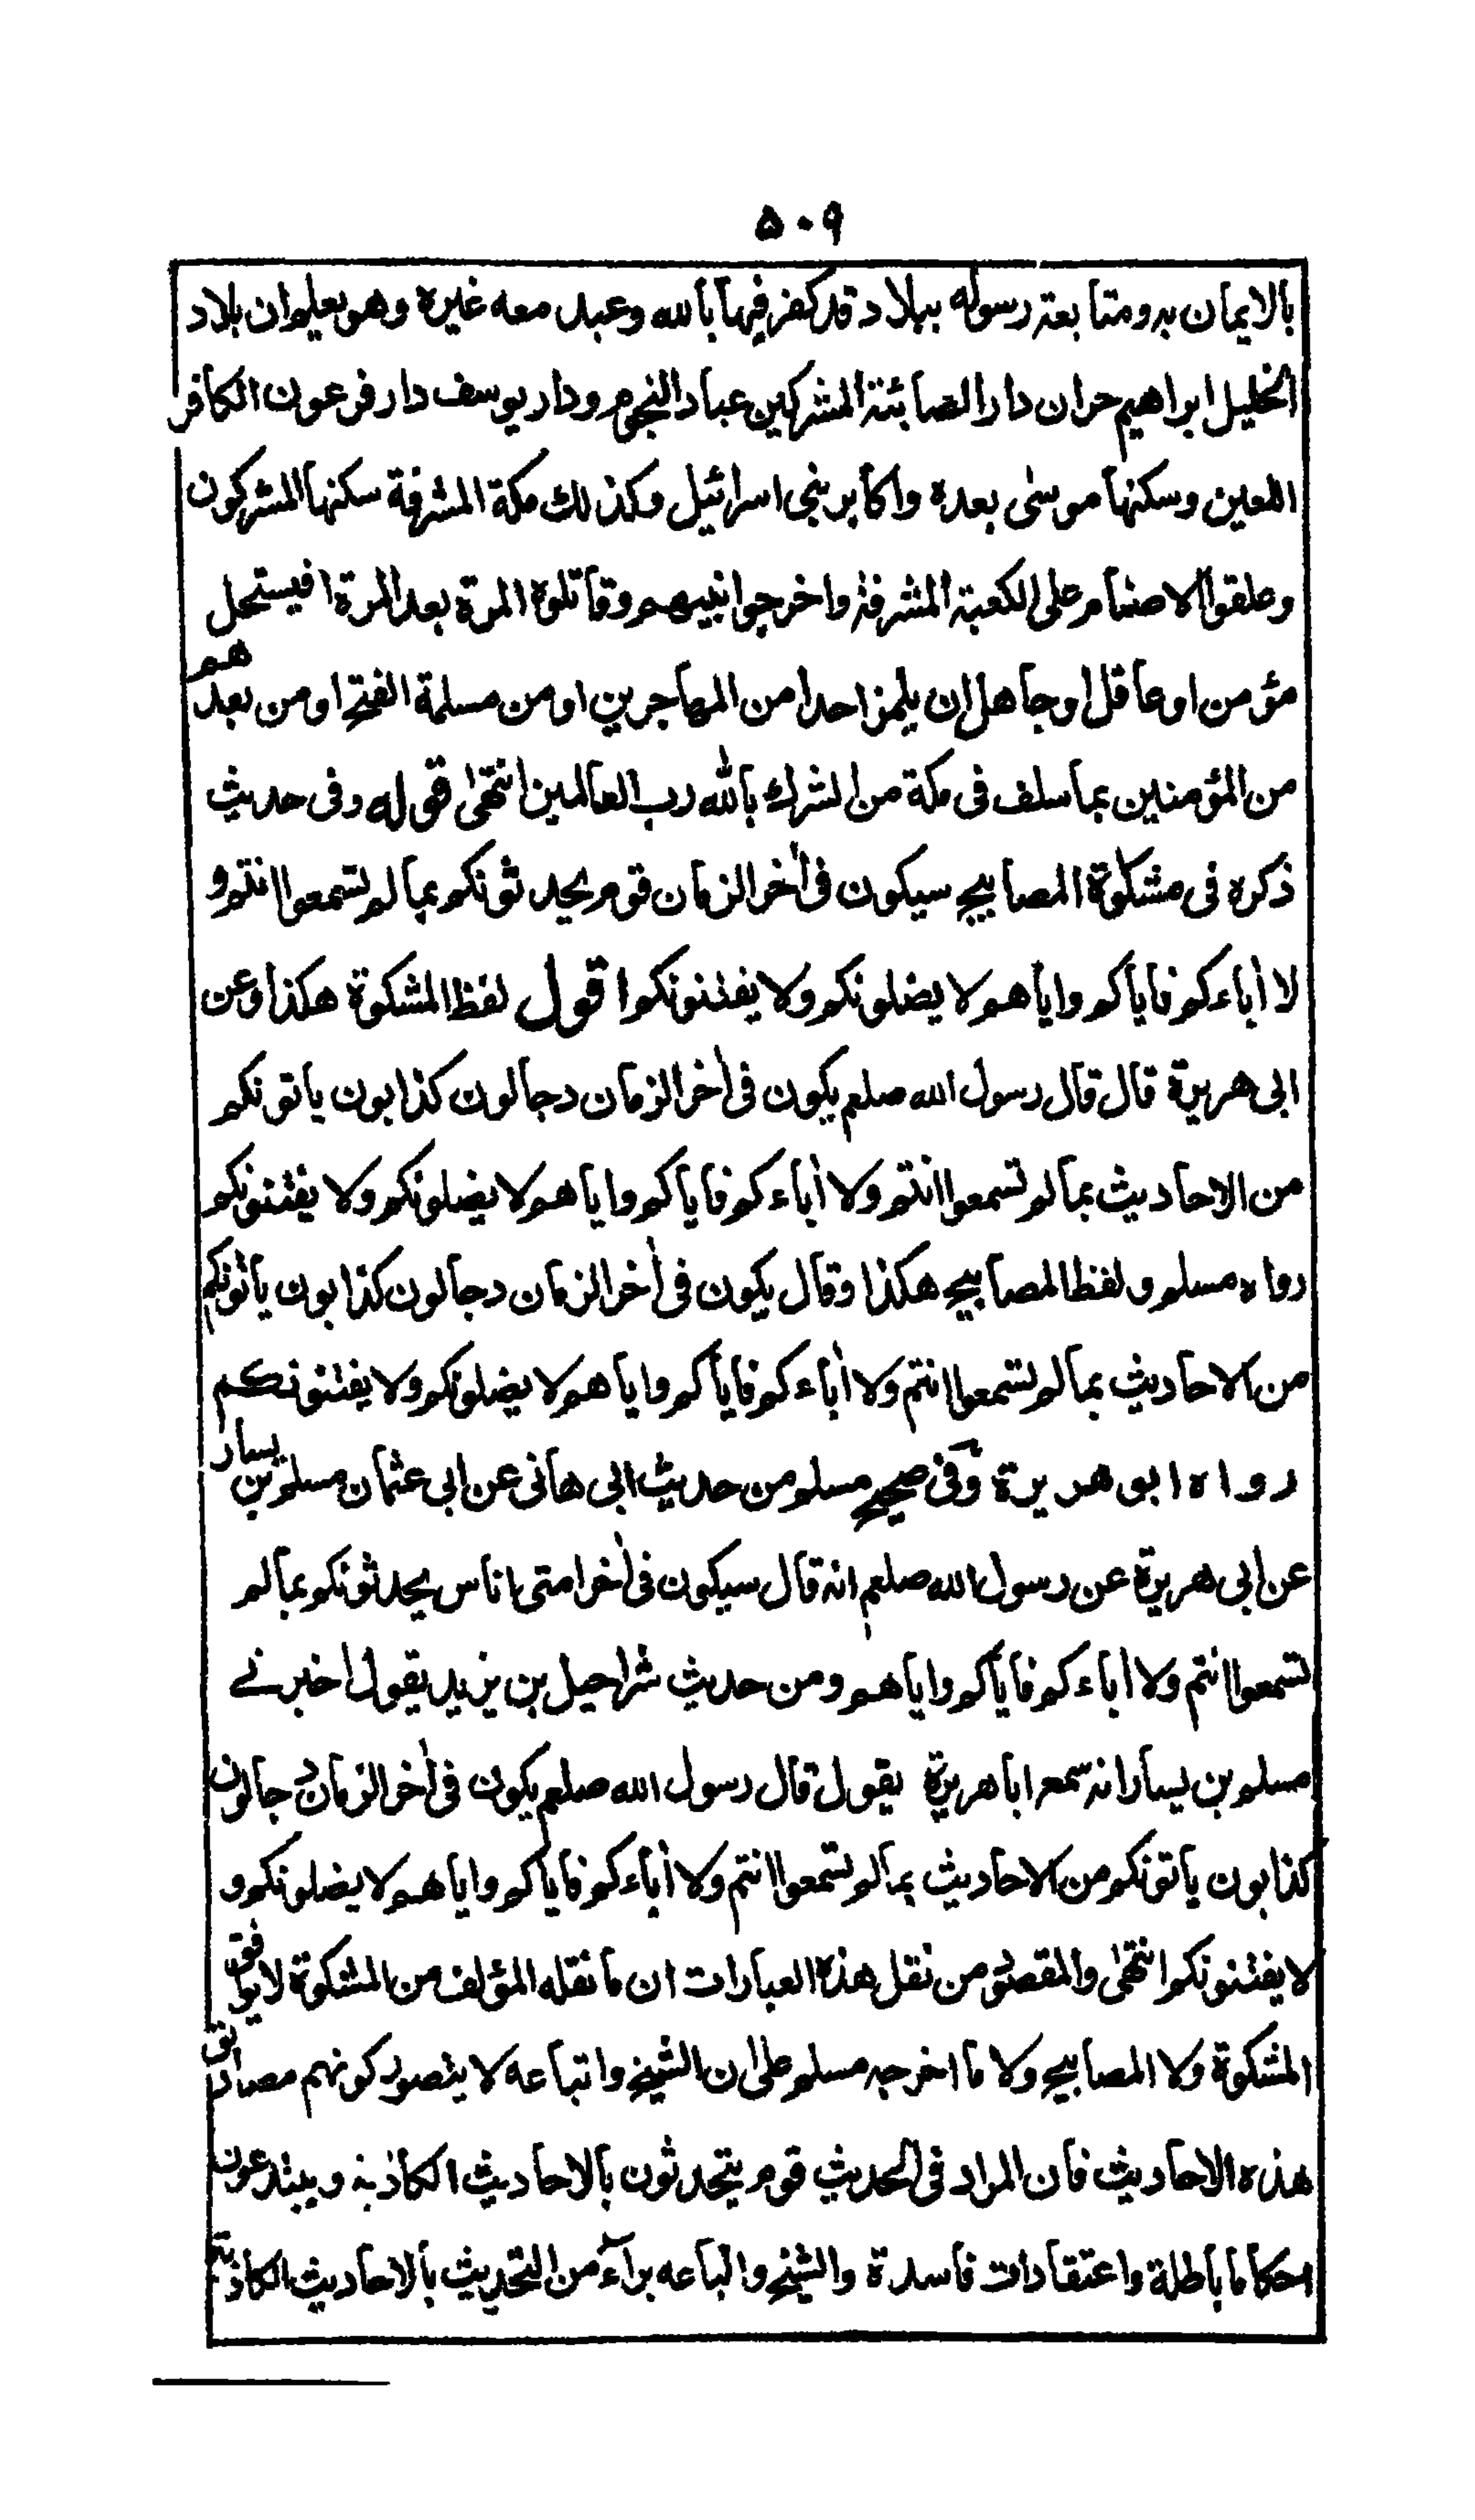 ۵۰۹
بالايمان به ومتابعة رسوله ببلاد قد كفر فيها بالله وعبد معه غيره وهو يعلم ان بلاد
الخليل ابراهيم حران دار الصابئة المشركين عباد النجوم ودار يوسف دار فرعون الكافر
اللعين وسكنها موسىٰ بعده واكابر بنى اسرائيل وكذلك مكة المشرفة سكنها المشركون
وعلقوا الاصنام على الكعبة المشرفة واخرجوا نبيهم وقاتلوه المرة بعد المرة افيستحل
مؤمن او عاقل او جاهل ان يلمز احدا من المهاجرين او من مسلمة الفتح او من بعدهم
من المؤمنين بما سلف فى مكة من الشرك بالله رب العالمين انتهىٰ قوله وفى حديث
ذكره فى مشكوة المصابيح سيكون فى اٰخر الزمان قوم يحدثونكم بما لم تسمعوا انتم و
لا اٰباءكم فاياكم واياهم لا يضلونكم ولا يفتنونكم اقول لفظ المشكوة هكذا وعن
ابى هريرة قال قال رسول الله صلعم يكون فى اٰخر الزمان دجالون كذابون ياتونكم
من الاحاديث بما لم تسمعوا انتم ولا اٰباءكم فاياكم واياهم لا يضلونكم ولا يفتنونكم
رواه مسلم ولفظ المصابيح هكذا وقال يكون فى اٰخر الزمان دجالون كذابون ياتونكم
من الاحاديث بما لم تسمعوا انتم ولا اٰباءكم فاياكم واياهم لا يضلونكم ولا يفتنونكم
رواه ابو هريرة وفى صحيح مسلم من حديث ابى هانى عن ابى عثمان مسلم بن يسار
عن ابى هريرة عن رسول الله صلعم انه قال سيكون فى اٰخر امتى اناس يحدثونكم بما لم
تسمعوا انتم ولا اباءكم فاياكم واياهم ومن حديث شراحيل بن يزيد يقول اخبرنے
مسلم بن يسار انه سمع ابا هريرة يقول قال رسول الله صلعم يكون فى اٰخر الزمان دجالون
كذابون ياتونكم من الاحاديث بما لم تسمعوا انتم ولا اٰباءكم فاياكم واياهم لا يضلونكم و
لا يفتنونكم انتهىٰ والمقصود من نقل هذه العبارات ان ما نقله المؤلف من المشكوة لا يوافق
المشكوة ولا المصابيح ولا ما اخرجه مسلم علىٰ ان الشيخ واتباعه لا يتصور كونهم مصداق
هذه الاحاديث فان المراد فى الحديث قوم يتحدثون بالاحاديث الكاذبة ويبتدعون
احكاما باطلة واعتقادات فاسدة والشيخ واتباعه براٰء من التحديث بالاحاديث الكاذبة